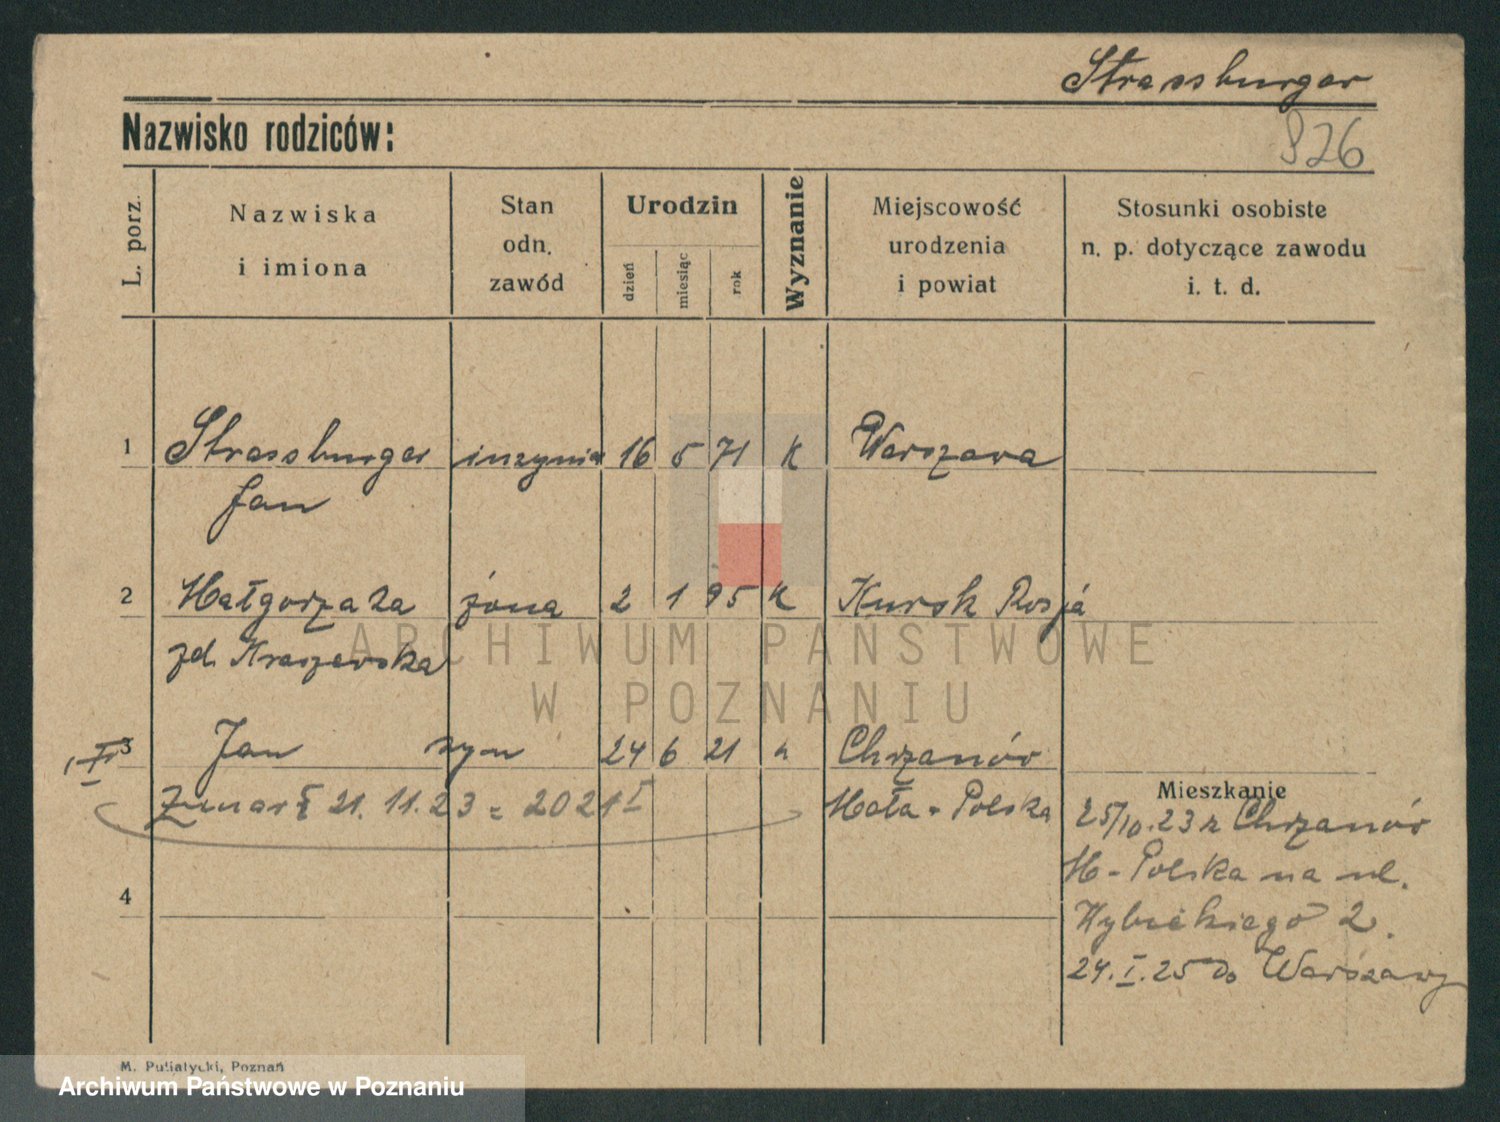 Strassburger
Nazwisko rodziców:
826
L. porz.
Nazwiska
i imiona
Stan
odn.
zawód
Urodzin
dzień
miesiąc
rok
Wyznanie
Miejscowość
urodzenia
i powiat
Stosunki osobiste
n. p. dotyczące zawodu
i. t. d.
1 Strassburger inżynier 16 5 71 K Warszawa
Jan
2 Małgorzata żona 2 1 95 K Kursk Rosja
zd. Kraszewska
3 Jan syn 24 6 21 K Chrzanów
Zmarł 21.11.23 = 2021 I Mała-Polska
Mieszkanie
25/10.23 z Chrzanów
M-Polska na ul.
Wybickiego 2.
24.I.25 do Warszawy
4
ARCHIWUM PAŃSTWOWE
W POZNANIU
M. Putiatycki, Poznań
Archiwum Państwowe w Poznaniu